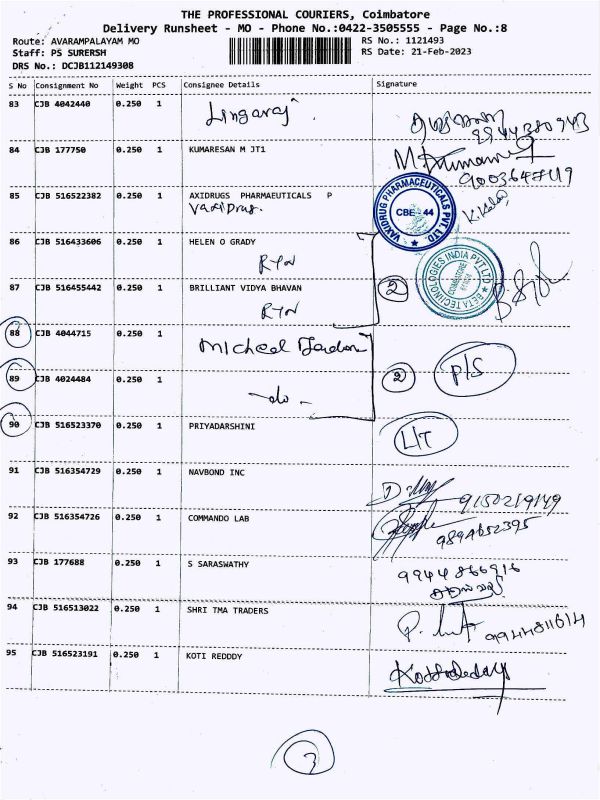 THE PROFESSIONAL COURIERS, Coimbatore
Delivery Runsheet - MO - Phone No.:0422-3505555 - Page No.:8
Route: AVARAMPALAYAM MO RS No.: 1121493
Staff: PS SURERSH RS Date: 21-Feb-2023
DRS No.: DCJB112149308
S No Consignment No Weight PCS Consignee Details Signature
83 CJB 4042440 0.250 1 Lingaraj
84 CJB 177750 0.250 1 KUMARESAN M JT1
9003647119
85 CJB 516522382 0.250 1 AXIDRUGS PHARMAEUTICALS P
Vaxi Drug.
VAXIDRUG PHARMACEUTICALS PVT. LTD.
CBE - 44
86 CJB 516433606 0.250 1 HELEN O GRADY
BETA TECHNOLOGIES INDIA PVT LTD
87 CJB 516455442 0.250 1 BRILLIANT VIDYA BHAVAN
2
88 CJB 4044715 0.250 1 Micheal
89 CJB 4024484 0.250 1 -do- 2 P/S
90 CJB 516523370 0.250 1 PRIYADARSHINI L/T
91 CJB 516354729 0.250 1 NAVBOND INC
92 CJB 516354726 0.250 1 COMMANDO LAB 9894652395
93 CJB 177688 0.250 1 S SARASWATHY 9944866916
94 CJB 516513022 0.250 1 SHRI TMA TRADERS 9944811614
95 CJB 516523191 0.250 1 KOTI REDDDY